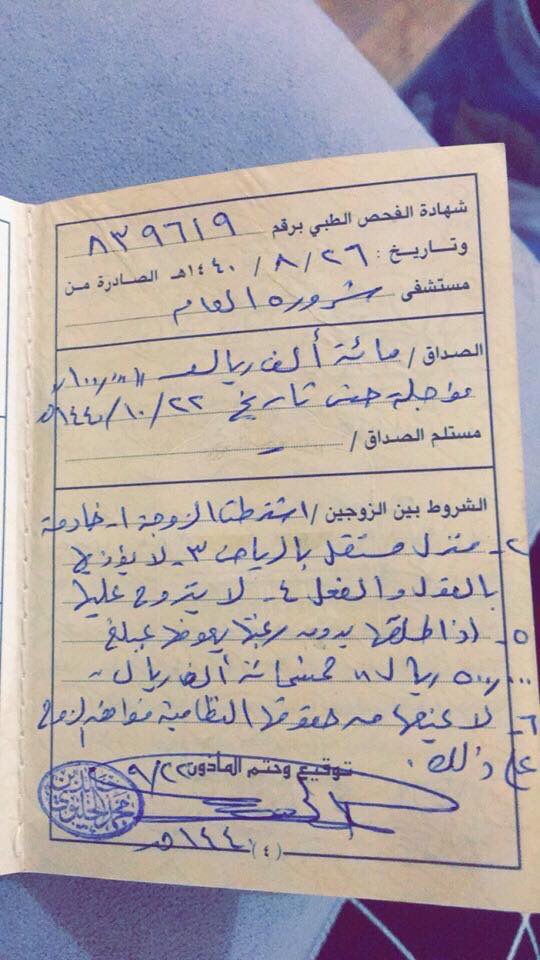 شهادة الفحص الطبي برقم ٨٣٩٦١٩
وتاريخ : ٢٦ / ٨ / ١٤٤٠هـ الصادرة من
مستشفى شروره العام
الصداق / مائة ألف ريال ١٠٠٠٠٠
مؤجلة حتى تاريخ ٢٢/ ١٠/ ١٤٤٠هـ
مستلم الصداق / -
الشروط بين الزوجين / اشترطت الزوجة ١- خادمة
٢- منزل مستقل بالرياض ٣- لا يؤذيها
بالقول والفعل ٤- لا يتزوج عليها
٥- اذا طلقها بدون رغبتها يعوضها بمبلغ
٥٠٠,٠٠٠ ريال خمسمائة ألف ريال
٦- لا يمنعها من حقوقها النظامية فوافق الزوج
على ذلك .
توقيع وختم المأذون
٩/٢٢
١٤٤٠هـ
(٤)